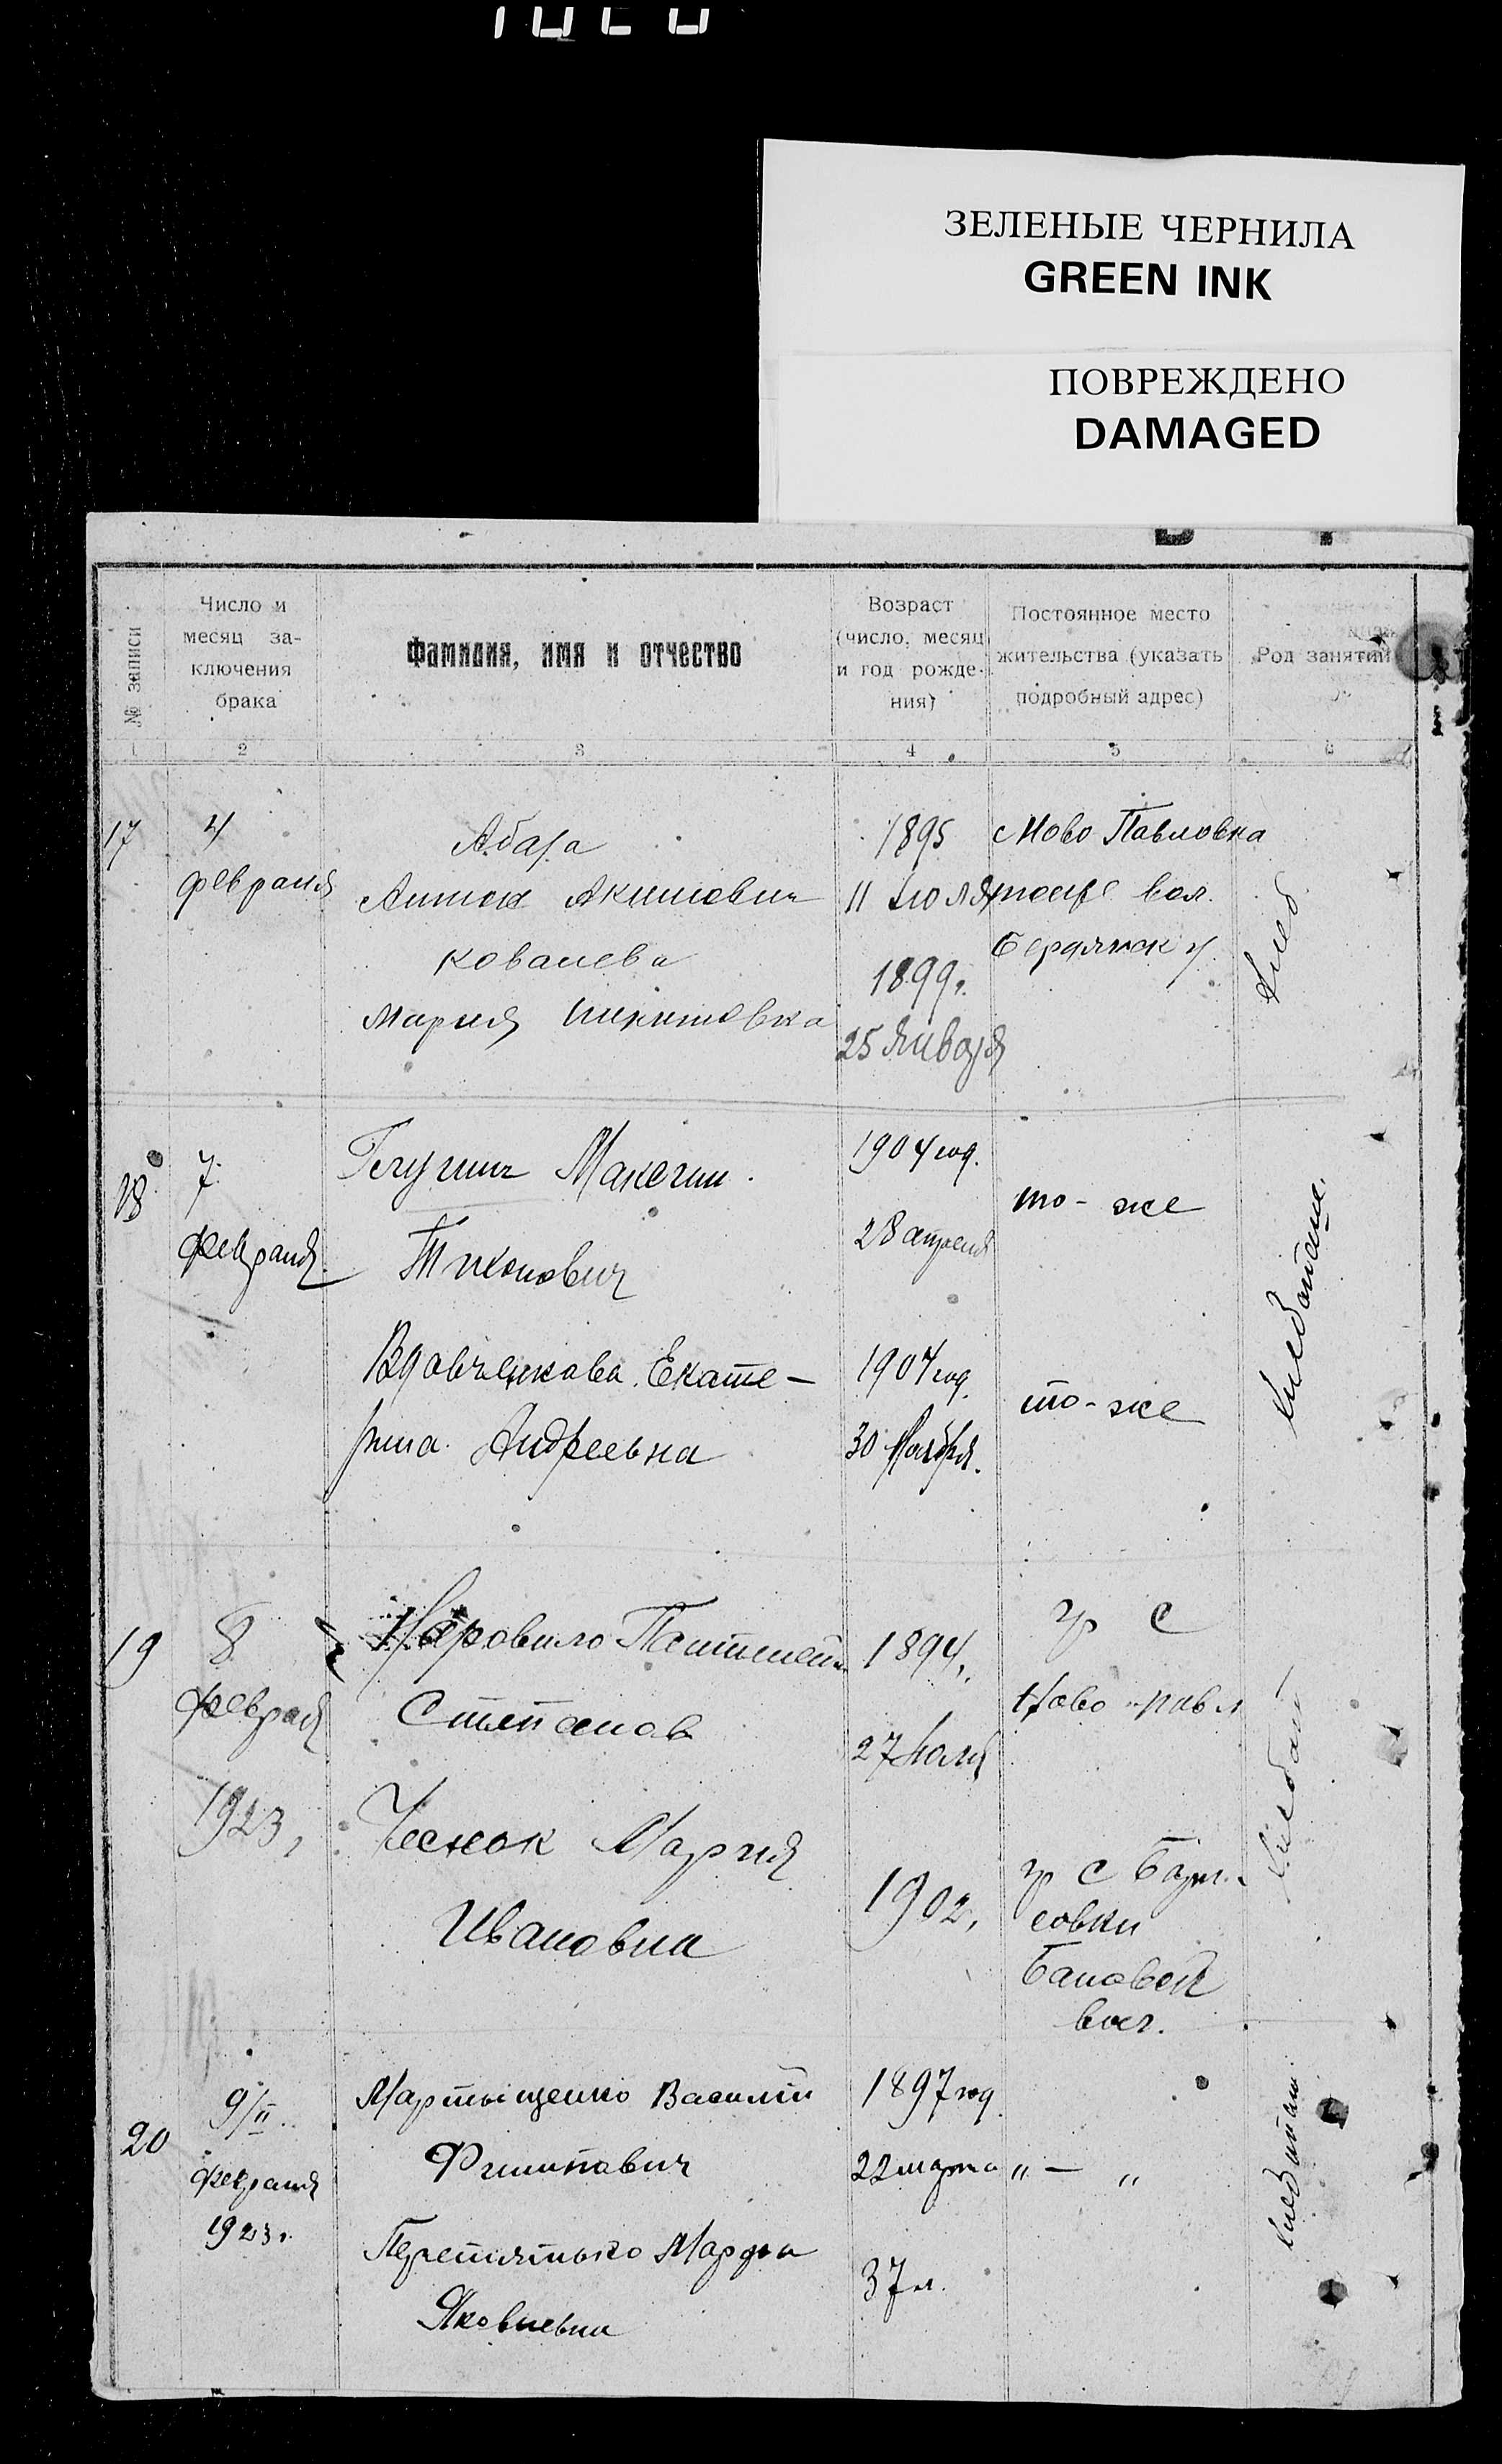 ЗЕЛЕНЫЕ ЧЕРНИЛА
GREEN INK
ПОВРЕЖДЕНО
DAMAGED
№ записи
Число и
месяц за-
ключения
брака
Фамилия, имя и отчество
Возраст
(число, месяц
и год рожде-
ния)
Постоянное место
жительства (указать
подробный адрес)
Род занятий
1 2 3 4 5 6
17
4
февраля
Абара
Антон Акимович
Ковалева
Мария Никитовна
1895
11 Июля
1899г.
25 Января
с Ново Павловка
тоеже вол.
Бердянск у.
Хлеб
18
7.
февраля.
Максим
Тихонович
Вдовченкова Екате-
рина Андреевна
1904 год.
28 апреля
1904 год.
30 Ноября.
то-же
то-же
Хлебопаш.
19
8
февраля
1923,
Степанов
Чеснок Мария
Ивановна
1894,
27 Июля
1902,
гр с
Ново павл
гр с
совки
вол.
Хлебопаш
20
9/II.
февраля
1923г.
Мартыщенко Василий
Филипович
Перетятько Марфа
Яковлевна
1897 год.
22 марта
37 л.
" — "
Хлебопаш.